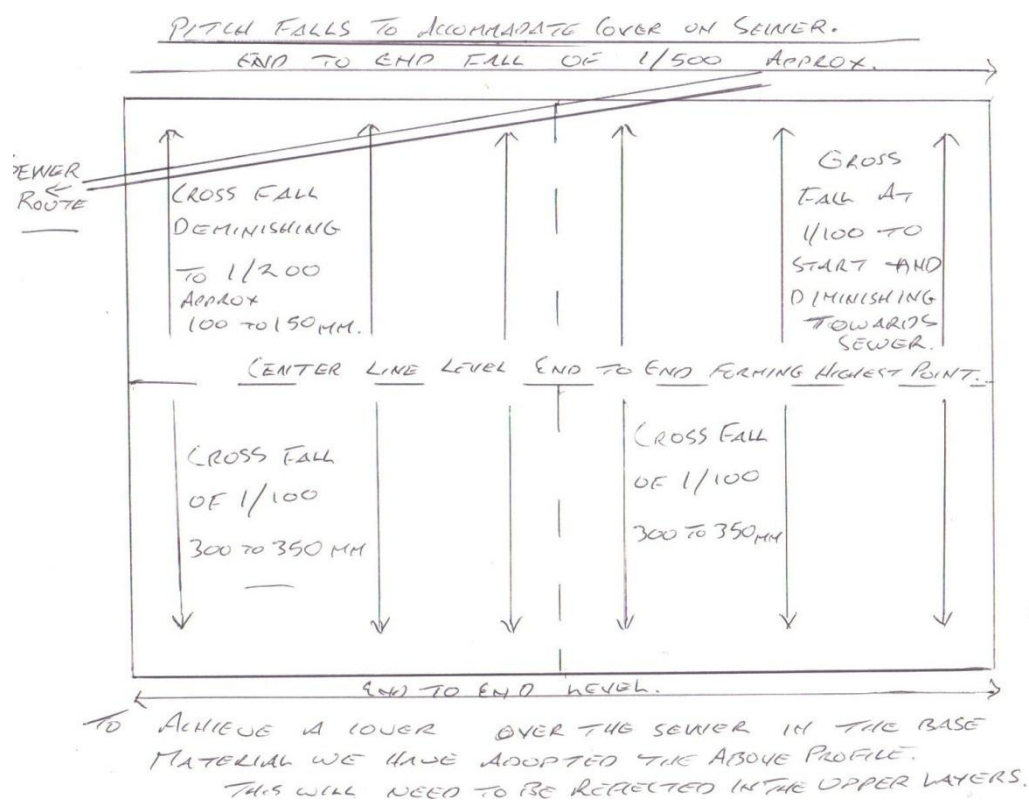 PITCH FALLS TO ACCOMMADATE COVER ON SEWER.
END TO END FALL OF 1/500 APPROX.
SEWER
ROUTE
CROSS FALL
DEMINISHING
TO 1/200
APPROX
100 TO 150 MM.
GROSS
FALL AT
1/100 TO
START AND
DIMINISHING
TOWARDS
SEWER.
CENTER LINE LEVEL END TO END FORMING HIGHEST POINT.
CROSS FALL
OF 1/100
300 TO 350 MM
CROSS FALL
OF 1/100
300 TO 350 MM
END TO END LEVEL.
TO ACHIEVE A COVER OVER THE SEWER IN THE BASE
MATERIAL WE HAVE ADOPTED THE ABOVE PROFILE.
THIS WILL NEED TO BE REFLECTED IN THE UPPER LAYERS.